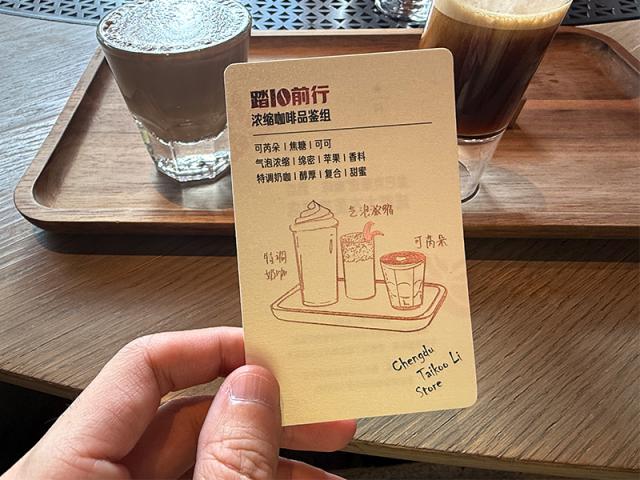 踏10前行
浓缩咖啡品鉴组
可芮朵 | 焦糖 | 可可
气泡浓缩 | 绵密 | 苹果 | 香料
特调奶咖 | 醇厚 | 复合 | 甜蜜
气泡浓缩
可芮朵
特调
奶咖
Chengdu
Taikoo Li
Store